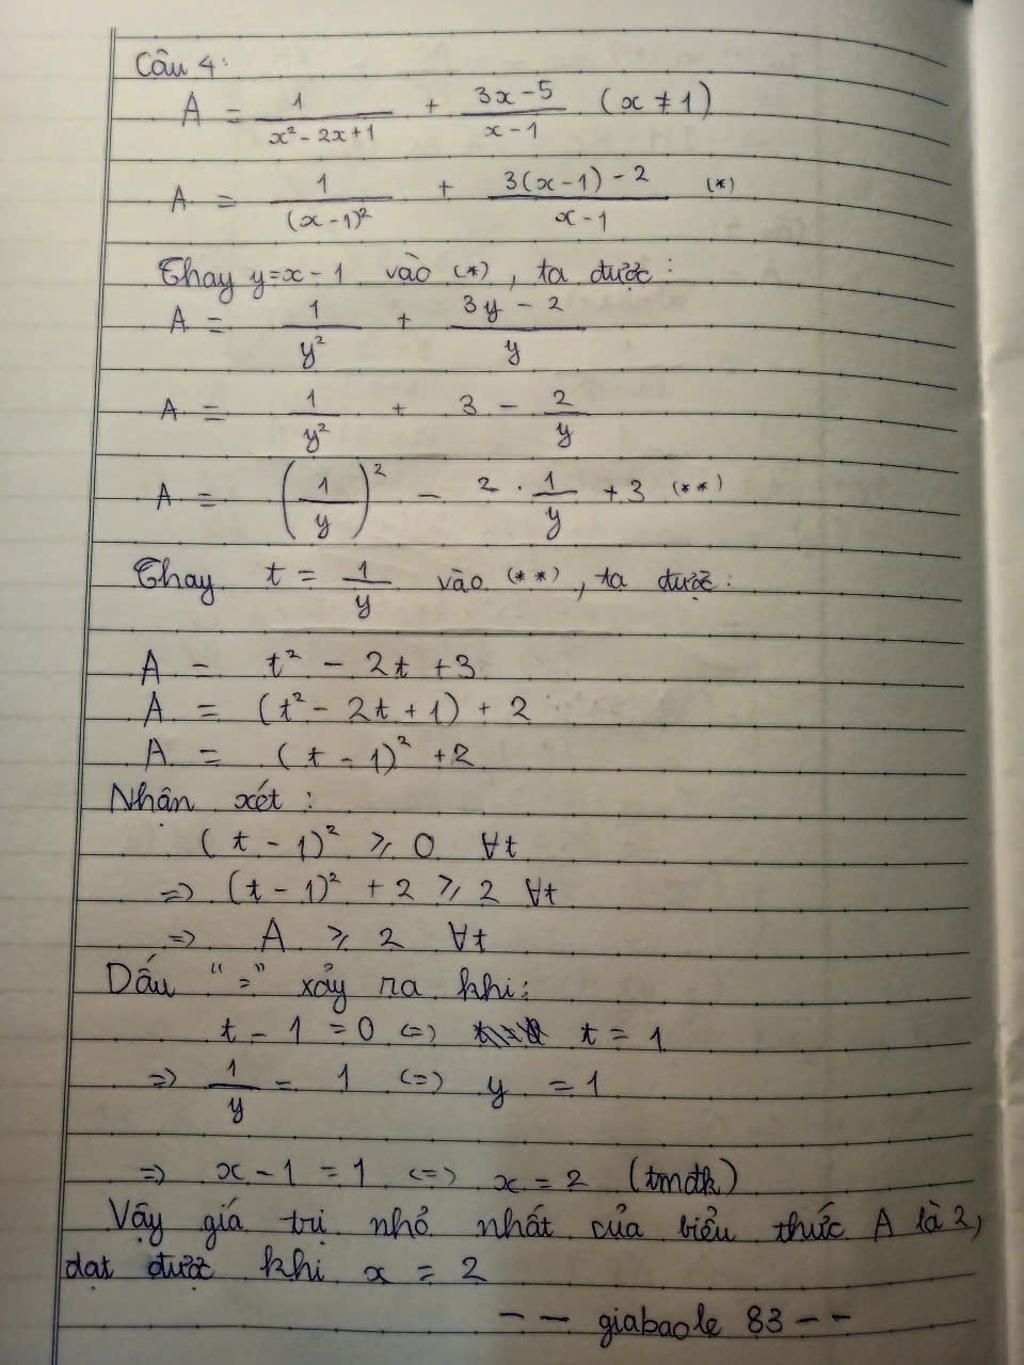 Câu 4:
A = 1/(x² - 2x + 1) + (3x - 5)/(x - 1) (x ≠ 1)
A = 1/(x - 1)² + (3(x - 1) - 2)/(x - 1) (*)
Thay y = x - 1 vào (*), ta được:
A = 1/y² + (3y - 2)/y
A = 1/y² + 3 - 2/y
A = (1/y)² - 2 . 1/y + 3 (**)
Thay t = 1/y vào (**), ta được:
A = t² - 2t + 3
A = (t² - 2t + 1) + 2
A = (t - 1)² + 2
Nhận xét:
(t - 1)² ⩾ 0 ∀t
=> (t - 1)² + 2 ⩾ 2 ∀t
=> A ⩾ 2 ∀t
Dấu "=" xảy ra khi:
t - 1 = 0 <=> t = 1
=> 1/y = 1 <=> y = 1
=> x - 1 = 1 <=> x = 2 (tmđk)
Vậy giá trị nhỏ nhất của biểu thức A là 2,
đạt được khi x = 2
-- giabaole 83 --